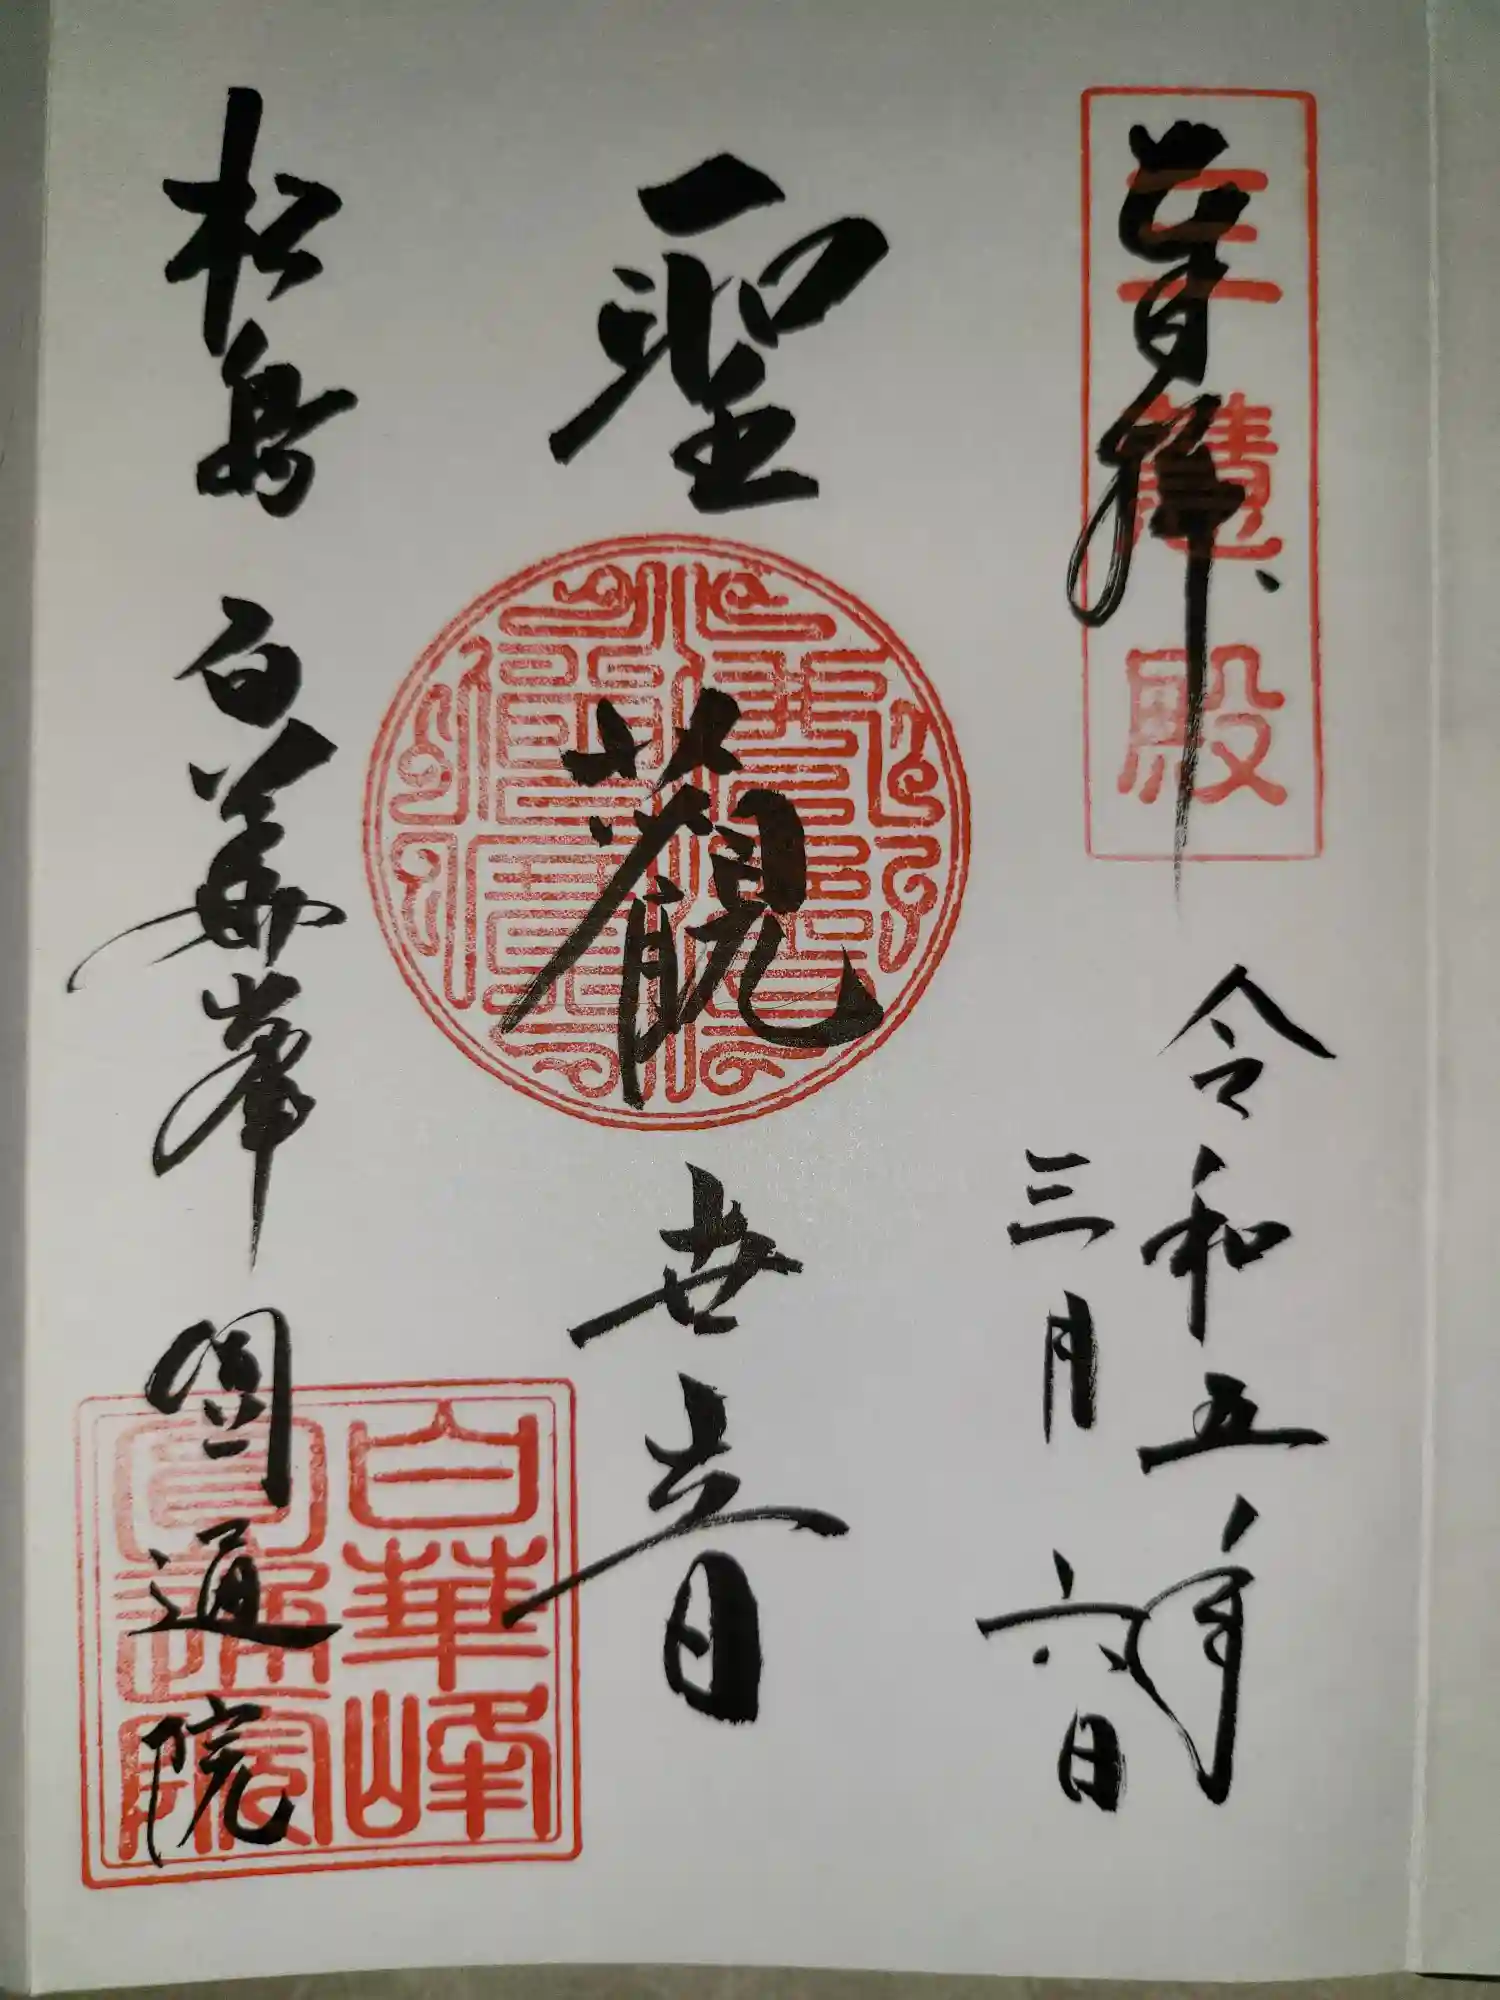 奉拝
三慧殿
令和五年
三月六日
聖觀世音
松島 白華峰 圓通院
白華峰
圓通院